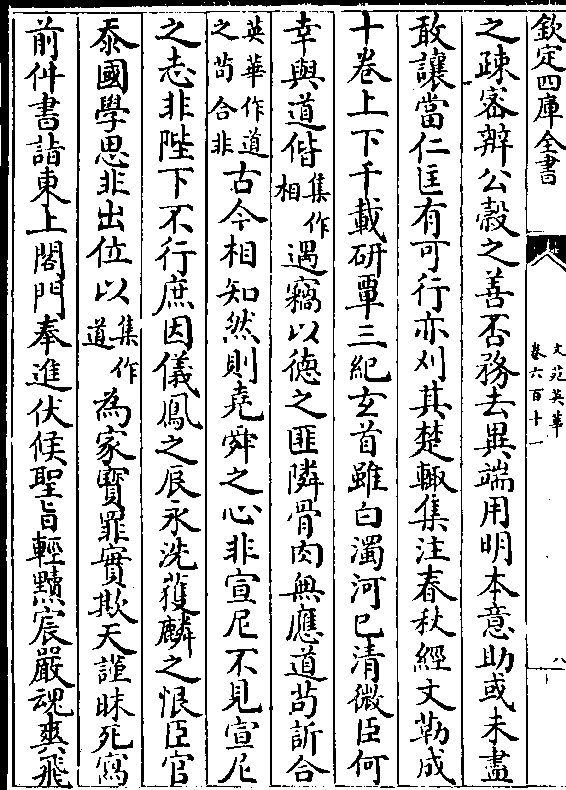 欽定四庫全書
文苑英華
卷六百十一
八
之疎密辨公穀之善否務去異端用明本意助或未盡
敢讓當仁匡有可行亦刈其楚輙集注春秋經文勒成
十卷上下千載研覃三紀玄首雖白濁河已清微臣何
幸與道偕集作相遇竊以德之匪隣骨肉無應道茍訢合
英華作道之茍合非古今相知然則堯舜之心非宣尼不見宣尼
之志非陛下不行庶因儀鳳之辰永洗獲麟之恨臣官
忝國學思非出位以集作道為家寳罪實欺天謹昧死寫
前件書詣東上閤門奉進伏候聖旨輕黷宸嚴魂爽飛